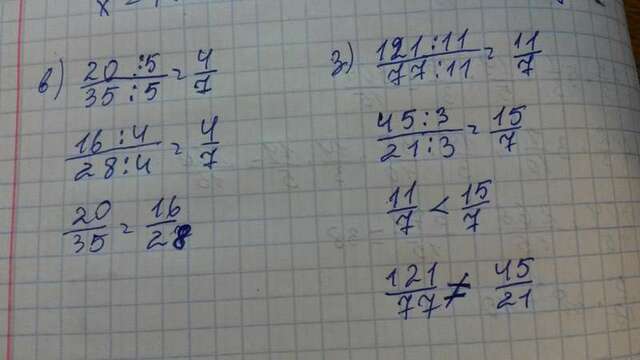 в) 20 :5 / 35 :5 = 4/7
16 :4 / 28 :4 = 4/7
20/35 = 16/28
з) 121 :11 / 77 :11 = 11/7
45 :3 / 21 :3 = 15/7
11/7 < 15/7
121/77 ≠ 45/21